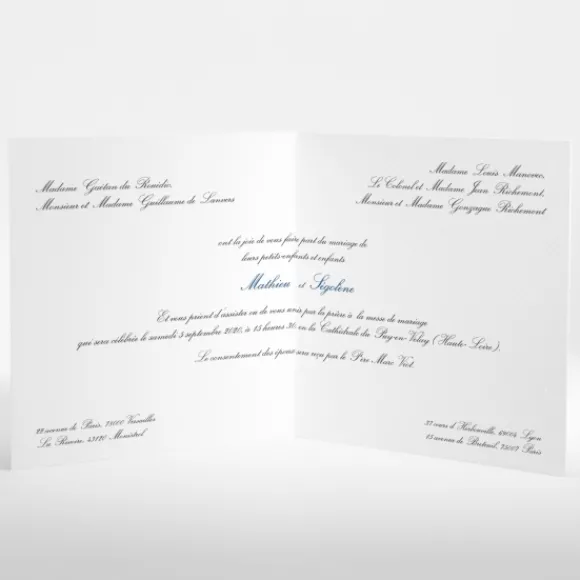 Madame Gaëtan du Rosidic,
Monsieur et Madame Guillaume de Lanvers
Madame Louis Manovec,
Le Colonel et Madame Jean Richemont,
Monsieur et Madame Gonzague Richemont
ont la joie de vous faire part du mariage de
leurs petits enfants et enfants
Mathieu et Ségolène
Et vous prient d'assister ou de vous unir par la prière à la messe de mariage
qui sera célébrée le samedi 5 septembre 2020, à 15 heures 30, en la Cathédrale du Puy-en-Velay (Haute-Loire).
Le consentement des époux sera reçu par le Père Marc Viot.
22 avenue de Paris, 78000 Versailles
La Rivoire, 43120 Monistrol
37 cours d'Herbouville, 69004 Lyon
15 avenue de Breteuil, 75007 Paris